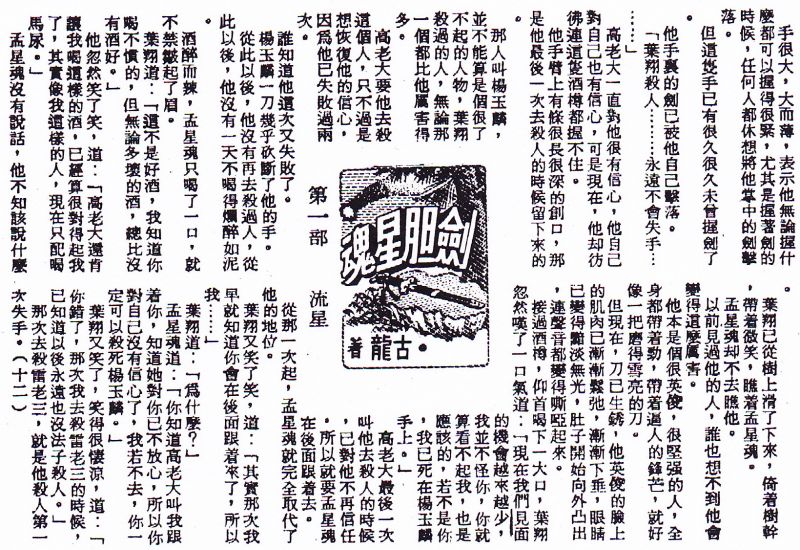 手很大，大而薄，表示他無論握什
麼都可以握得很緊，尤其是握著劍的
時候，任何人都休想將他掌中的劍擊
落。
但這隻手已有很久很久未曾握劍了
。
他手裏的劍已被他自己擊落。
「葉翔殺人………永遠不會失手…
……」
高老大一直對他很有信心，他自己
對自己也有信心，可是現在，他却彷
彿連這隻酒樽都握不住。
他手臂上有條很長很深的創口，那
是他最後一次去殺人的時候留下來的
。
那人叫楊玉麟，
並不能算是個很了
不起的人物，葉翔
殺過的人，無論那
一個都比他厲害得
多。
高老大要他去殺
這個人，只不過是
想恢復他的信心，
因爲他已失敗過兩
次。
誰知道他這次又失敗了。
楊玉麟一刀幾乎砍斷了他的手。
從此以後，他沒有再去殺過人，從
此以後，他沒有一天不喝得爛醉如泥
。
酒醉而辣，孟星魂只喝了一口，就
不禁皺起了眉。
葉翔道：「這不是好酒，我知道你
喝不慣的，但無論多壞的酒，總比沒
有酒好。」
他忽然笑了笑，道：「高老大還肯
讓我喝這樣的酒，已經算很對得起我
了，其實像我這樣的人，現在只配喝
馬尿。」
孟星魂沒有說話，他不知該說什麼
。
劍胆星魂
古龍著
第一部　流星
葉翔已從樹上滑了下來，倚着樹幹
，帶着微笑，瞧着孟星魂。
孟星魂却不去瞧他。
以前見過他的人，誰也想不到他會
變得這麼厲害。
他本是個很英俊，很堅强的人，全
身都帶着勁，帶着逼人的鋒芒，就好
像一把磨得雪亮的刀。
但現在，刀已生銹，他英俊的臉上
的肌肉已漸漸鬆弛，漸漸下垂，眼睛
已變得黯淡無光，肚子開始向外凸出
，連聲音都變得嘶啞起來。
接過酒樽，仰首喝下一大口，葉翔
忽然嘆了一口氣道：「現在我們見面
的機會越來越少，
我並不怪你，你就
算看不起我，也是
應該的，若不是你
，我已死在楊玉麟
手上。」
高老大最後一次
叫他去殺人的時候
，已對他不再信任
，所以就要孟星魂
在後面跟着去。
從那一次起，孟星魂就完全取代了
他的地位。
葉翔又笑了笑，道：「其實那次我
早就知道你會在後面跟着來了，所以
我……」
葉翔道：「爲什麼？」
孟星魂道：「你知道高老大叫我跟
着你，知道她對你已不放心，所以你
對自己沒有信心了，我若不去，你一
定可以殺死楊玉麟。」
葉翔又笑了，笑得很悽涼，道：「
你錯了，那次我去殺雷老三的時候，
已知道以後永遠也沒法子殺人。」
那次去殺雷老三，就是他殺人第一
次失手。（十二）